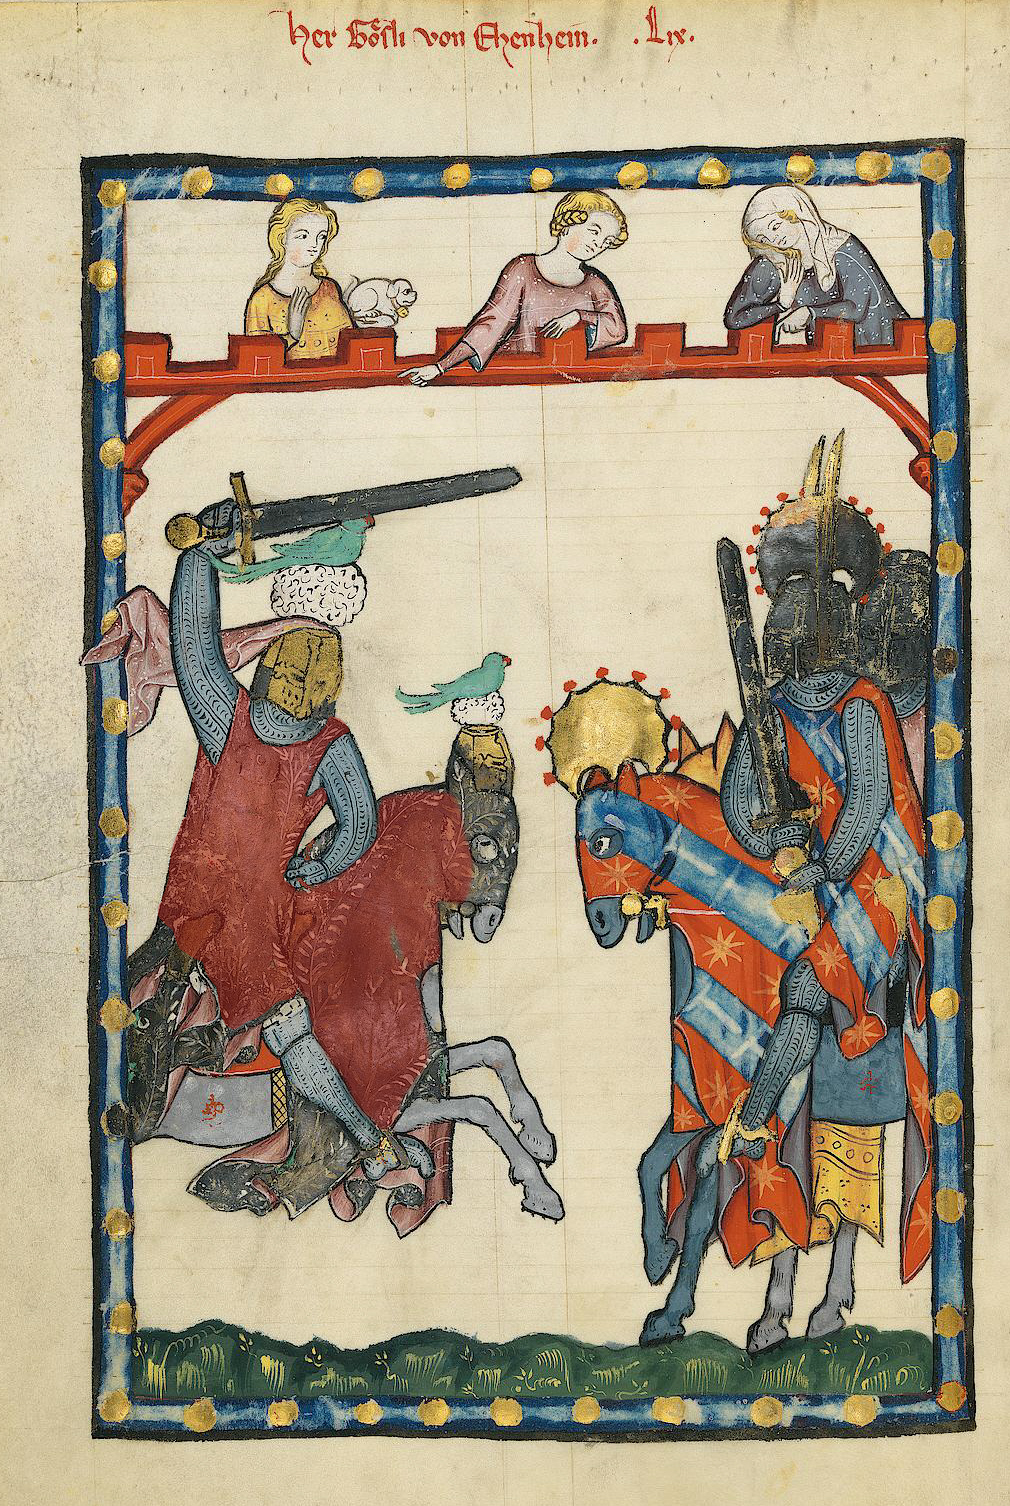 Her Gösli von Ehenhein. .Lix.